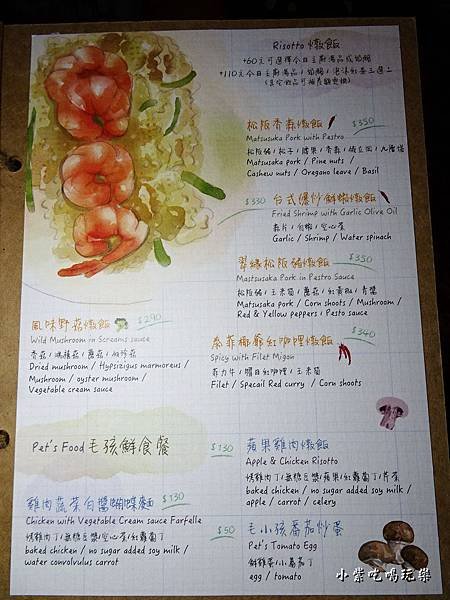 Risotto 燉飯
+60元可選擇今日主廚湯品或奶酪
松阪香蒜燉飯 $350
Matsusuka Pork with Pestro
Matsusaka pork / Pine nuts /
Cashew nuts / Oregano leave / Basil
$330 台式爆炒鮮蝦燉飯
Fried Shrimp with Garlic Olive Oil
蒜片 / 白蝦 / 空心菜
Garlic / Shrimp / Water spinach
翠綠松阪豬燉飯 $350
Mastsusaka Pork in Pestro Sauce
Matsusaka pork / Corn shoots / Mushroom /
Red & Yellow peppers / Pesto sauce
風味野菇燉飯 $290
Wild Mushroom in Screams sauce
Dried mushroom / Hypsizigus marmoreus /
Mushroom / oyster mushroom /
Vegetable cream sauce
泰菲椰爺紅咖哩燉飯 $340
Spicy with Filet Migon
Filet / Specail Red curry / Corn shoots
Pet's Food 毛孩鮮食餐
$130 蘋果雞肉燉飯
Apple & Chicken Risotto
baked chicken / no sugar added soy milk /
apple / carrot / celery
雞肉蔬菜白醬蝴蝶麵 $130
Chicken with Vegetable Cream sauce Farfelle
baked chicken / no sugar added soy milk /
water convolvulus carrot
$50 毛小孩番茄炒蛋
Pet's Tomato Egg
鮮雞蛋 / 小番茄丁
egg / tomato
小紫吃喝玩樂